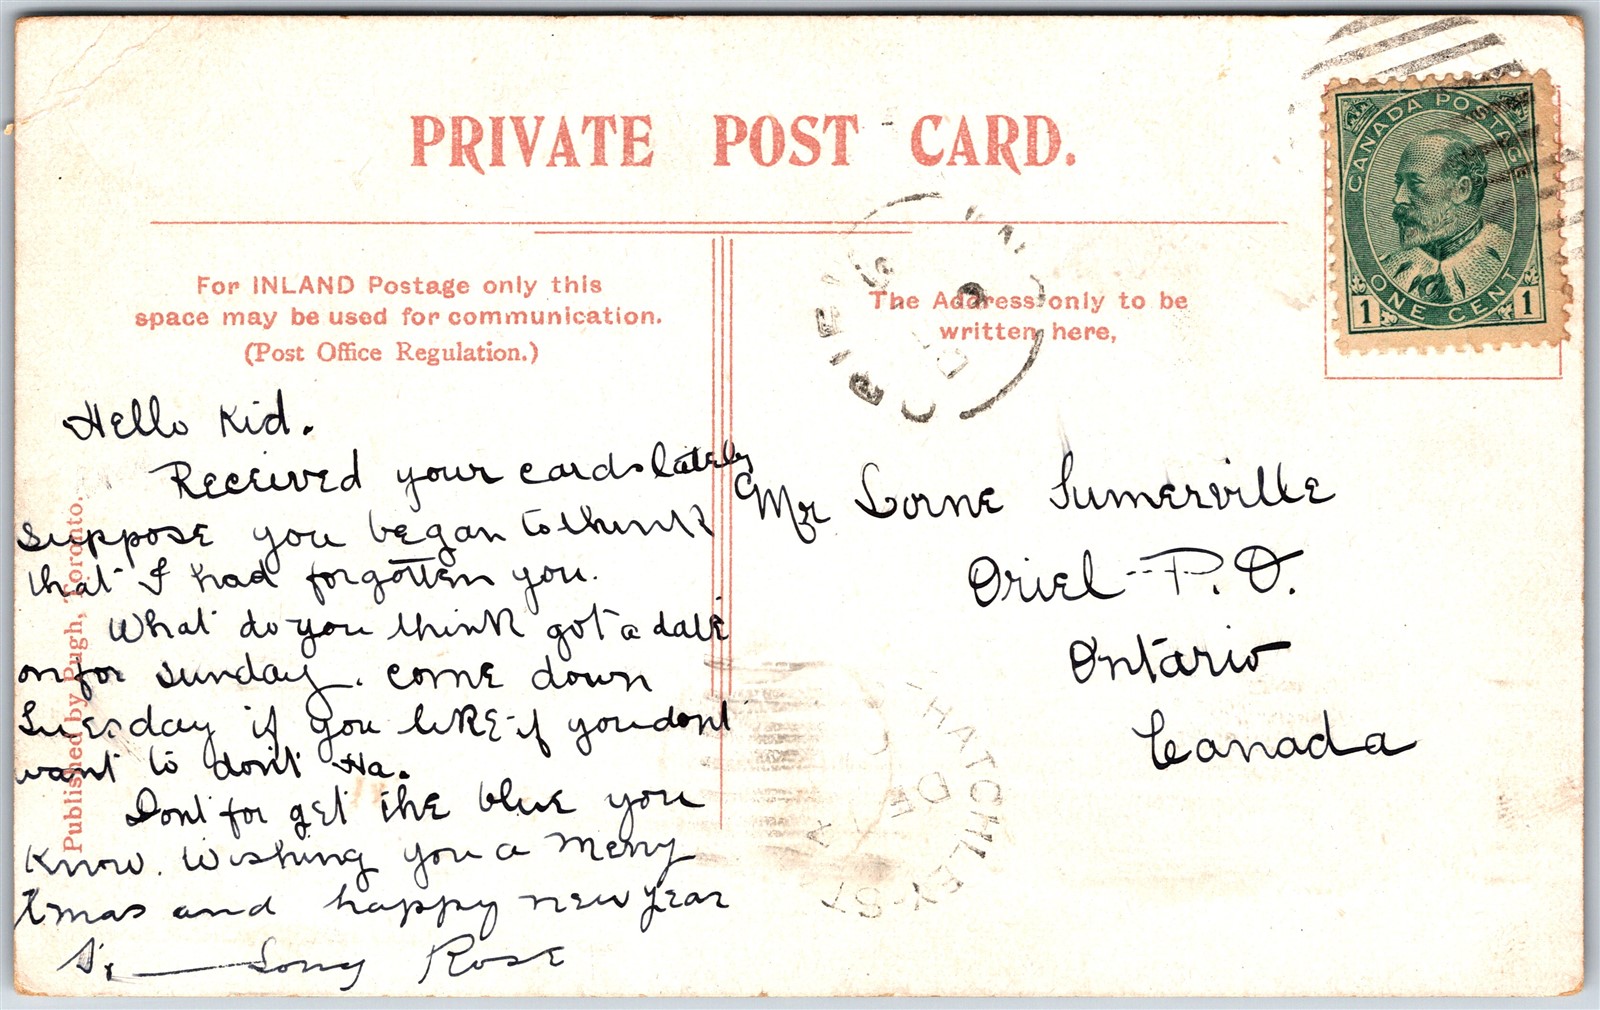 PRIVATE POST CARD.
For INLAND Postage only this
space may be used for communication.
(Post Office Regulation.)
The Address only to be
written here,
CANADA POSTAGE
ONE CENT
1 1
Published by Pugh, Toronto.
Hello Kid.
Received your cards lately
suppose you began to think
that I had forgotten you.
What do you think got a date
on for sunday. come down
Tuesday if you like if you dont
want to dont Ha.
Dont for get the blue you
Know. Wishing you a Merry
Xmas and happy new year
Rose
Mr Lorne Sumerville
Oriel P.O.
Ontario
Canada
HATCHLEY-ST
DE